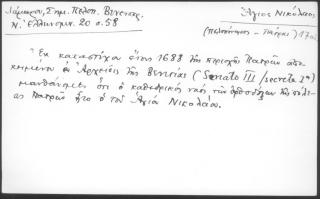 Λάμπρου, Σημ. Πελοπ. Βενετας.
Ν. Ἑλληνομν. 20 σ. 58
Ἅγιος Νικόλαος
(Πελοπόννησος - Πάτραι) 170
Ἐκ καταστίχου ἔτους 1688 τῆς περιοχῆς Πατρῶν ἀπο
κειμένου ἐν Ἀρχείοις τῆς Βενετίας (Senato III/secreta
μανθάνομεν ὅτι ὁ καθεδρικὸς ναὸς τῶν ὀρθοδόξων τῆς πόλε-
ως Πατρῶν ἦτο ὁ τοῦ Ἁγίου Νικολάου.